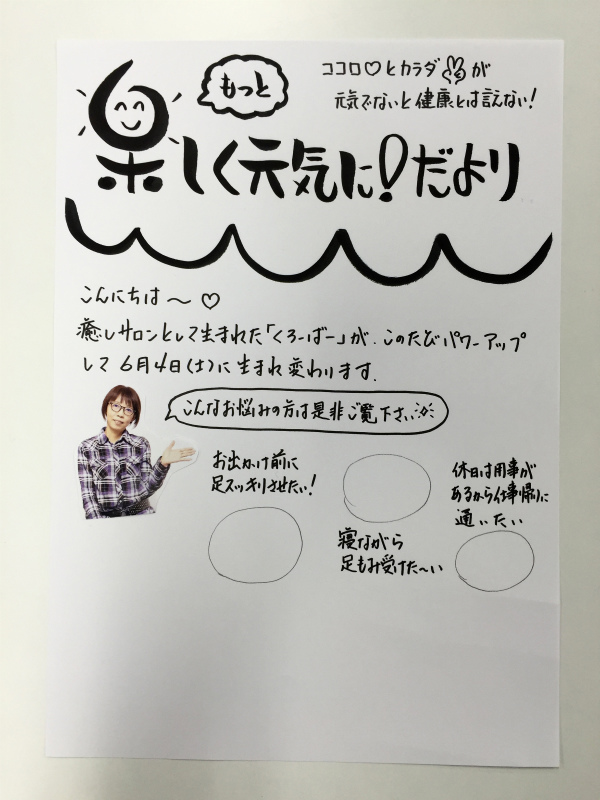 もっと
ココロ♡とカラダ✌が
元気でないと健康とは言えない!
楽しく元気に!だより
こんにちは〜♡
癒しサロンとして生まれた「くろーばー」が、このたびパワーアップ
して6月4日(土)に生まれ変わります.
こんなお悩みの方は是非ご覧下さい
お出かけ前に
足スッキリさせたい!
寝ながら
足もみ受けた〜い
休日は用事が
あるから仕事帰りに
通いたい